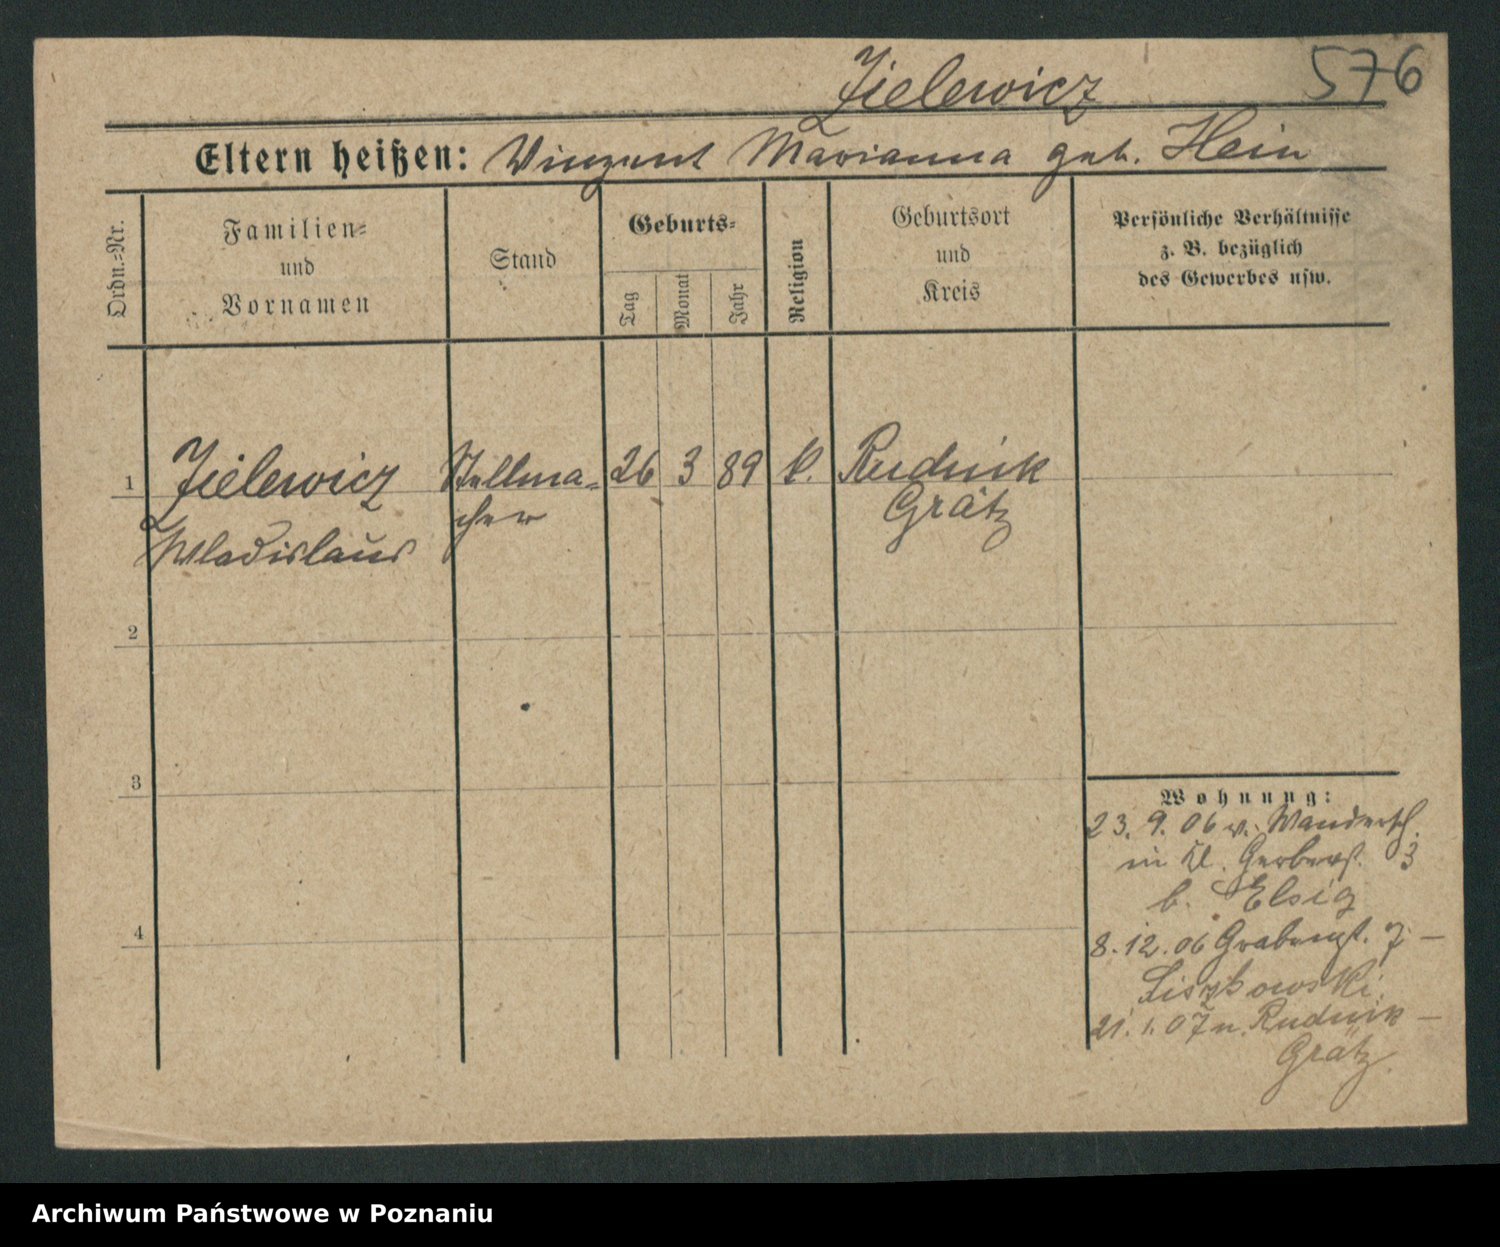 Zielewicz 576
Eltern heißen: Vinzent Marianna geb. Hein
Ordn.-Nr.
Familien-
und
Vornamen
Stand
Geburts-
Tag
Monat
Jahr
Religion
Geburtsort
und
Kreis
Persönliche Verhältnisse
z. B. bezüglich
des Gewerbes usw.
1 Zielewicz Stellma- 26 3 89 k. Rudnik
cher Grätz
Wladislaus
2
3
4
Wohnung:
23. 9. 06 v. Wandersch.
in Kl. Gerberst. 3
b. Elsig
8. 12. 06 Grabenst. 7 —
Liszkowski
21. 1. 07 n. Rudnik —
Grätz.
Archiwum Państwowe w Poznaniu